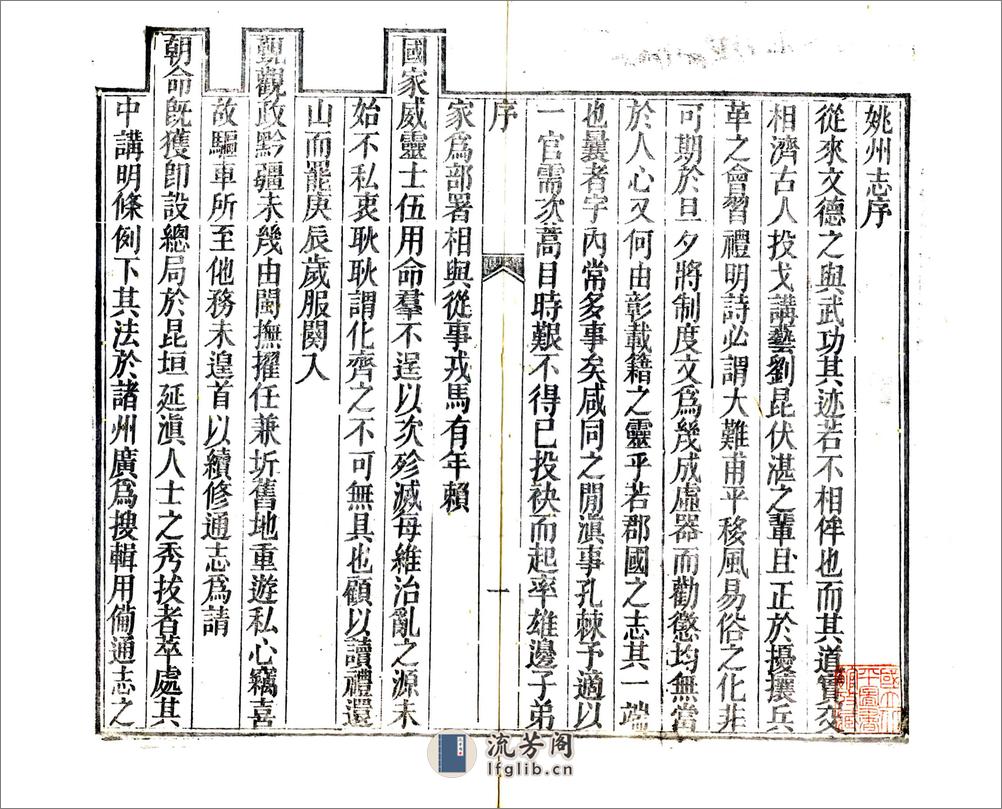 姚州志序
從來文德之與武功其迹若不相侔也而其道實交
相濟古人投戈講藝劉昆伏湛之輩且正於擾攘兵
革之會習禮明詩必謂大難甫平移風易俗之化非
可期於旦夕將制度文爲幾成虛器而勸懲均無當
於人心又何由彰載籍之靈乎若郡國之志其一端
也曩者宇內常多事矣咸同之閒滇事孔棘予適以
一官需次蒿目時艱不得已投袂而起率雄邊子弟
序
一
家爲部署相與從事戎馬有年賴
國家威靈士伍用命羣不逞以次殄滅每維治亂之源未
始不私衷耿耿謂化齊之不可無具也顧以讀禮還
山而罷庚辰歲服闋入
覲觀政黔疆未幾由閩撫擢任兼圻舊地重遊私心竊喜
故驅車所至他務未遑首以續修通志爲請
朝命旣獲卽設總局於昆垣延滇人士之秀拔者萃處其
中講明條例下其法於諸州廣爲搜輯用備通志之
流芳阁
lfglib.cn